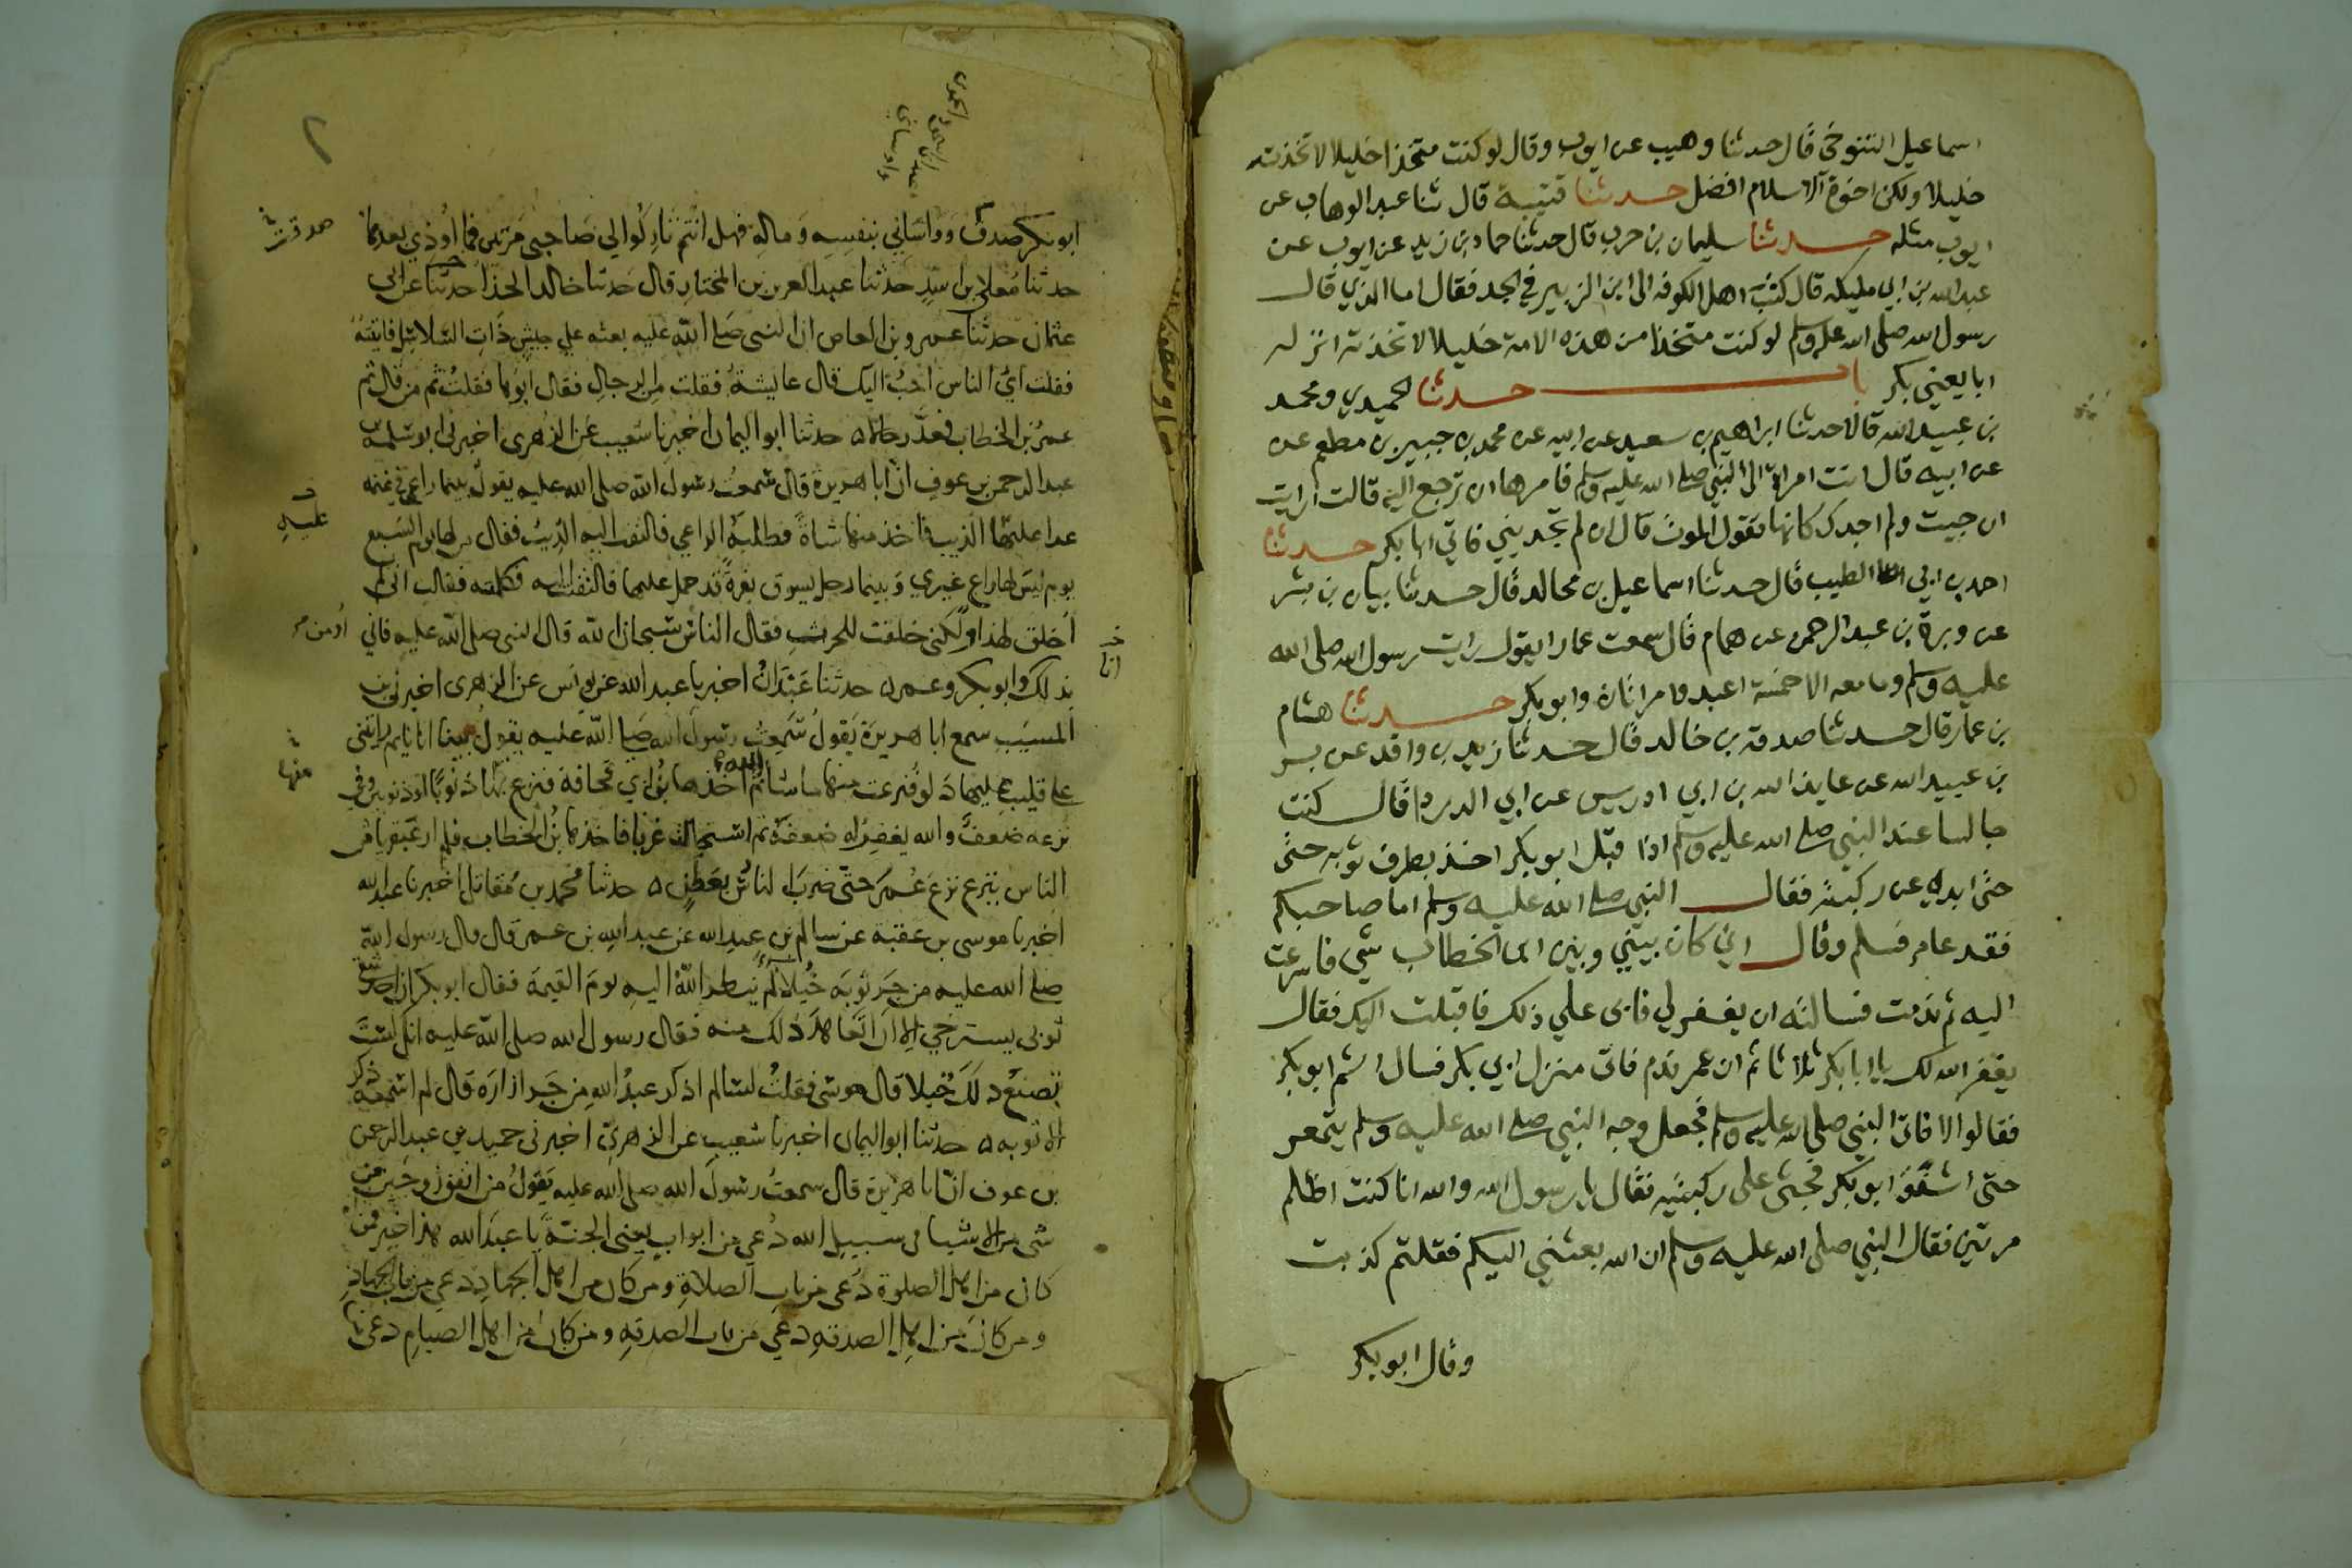 اسماعيل التنوخى قال حدثنا وهيب عن ايوب وقال لو كنت متخذا خليلا لاتخذته
خليلا ولكن اخوة الاسلام افضل حدثنا قتيبة قال ثنا عبد الوهاب عن
ايوب مثله حدثنا سليمان بن حرب قال حدثنا حماد بن زيد عن ايوب عن
عبد الله بن ابي مليكه قال كتب اهل الكوفه الى ابن الزبير في الجد فقال اما الذي قال
رسول الله صلى الله عليه وسلم لو كنت متخذا من هذه الامة خليلا لاتخذته انزله
ابا يعني بكر باب حدثنا الحميدي ومحمد
بن عبيد الله قالا حدثنا ابراهيم بن سعيد عن ابيه عن محمد بن جبير بن مطعم عن
عن ابيه قال اتت امراة الى النبي صلى الله عليه وسلم فامرها ان ترجع اليه قالت ارايت
ان جيت ولم اجدك كانها تقول الموت قال ان لم تجديني فاتي ابا بكر حدثنا
احمد بن ابي الطيب قال حدثنا اسماعيل بن مجالد قال حدثنا بيان بن بشر
عن وبرة بن عبد الرحمن عن همام قال سمعت عمارا يقول رايت رسول الله صلى الله
عليه وسلم وما معه الا خمسة اعبد وامراتان وابو بكر حدثنا هشام
بن عمار قال حدثنا صدقه بن خالد قال حدثنا زيد بن واقد عن بسر
بن عبيد الله عن عايذ الله بن ابي ادريس عن ابي الدردا قال كنت
جالسا عند النبي صلى الله عليه وسلم اذا قبل ابو بكر اخذ بطرف ثوبه حتى
حتى ابدى عن ركبته فقال النبي صلى الله عليه وسلم اما صاحبكم
فقد غامر فسلم وقال اني كان بيني وبين ابن الخطاب شي فاسرعت
اليه ثم ندمت فسالته ان يغفر لي فابى علي ذلك فاقبلت اليك فقال
يغفر الله لك يا ابا بكر ثلاثا ثم ان عمر ندم فاتى منزل ابي بكر فسال اثم ابو بكر
فقالوا لا فاتى النبي صلى الله عليه وسلم فجعل وجه النبي صلى الله عليه وسلم يتمعر
حتى اشفق ابو بكر فجثى على ركبتيه فقال يا رسول الله والله انا كنت اظلم
مرتين فقال النبي صلى الله عليه وسلم ان الله بعثني اليكم فقلتم كذبت
وقال ابو بكر
٢
ابو بكر صدق وواساني بنفسه وماله فهل انتم تاركوا لي صاحبي مرتين فما اوذي بعدها
صدقت
حدثنا معلى بن اسد حدثنا عبد العزيز بن المختار قال حدثنا خالد الحذا حدثنا عن ابي
عثمان حدثنا عمرو بن العاص ان النبى صلى الله عليه بعثه على جيش ذات السلاسل فاتيته
فقلت اي الناس احب اليك قال عايشة فقلت من الرجال فقال ابوها فقلت ثم من قال ثم
عمر بن الخطاب فعد رجالا ه حدثنا ابو اليمان اخبرنا شعيب عن الزهرى اخبرنى ابو سلمة بن
عبد الرحمن بن عوف ان ابا هريرة قال سمعت رسول الله صلى الله عليه يقول بينما راعي في غنمه
عدا عليها الذيب فاخذ منها شاة فطلبه الراعي فالتفت اليه الذيب فقال من لها يوم السبع
عليه
يوم ليس لها راع غيري وبينما رجل يسوق بقرة قد حمل عليها فالتفتت اليه فكلمته فقالت اني لم
اخلق لهذا ولكني خلقت للحرث فقال الناس سبحان الله قال النبى صلى الله عليه فاني
اومن
انا
بذلك وابو بكر وعمر ه حدثنا عبدان اخبرنا عبد الله عن يونس عن الزهرى اخبرنى بن
المسيب سمع ابا هريرة يقول سمعت رسول الله صلى الله عليه يقول بينا انا نايم رايتنى
على قليب عليها دلو فنزعت منها ما شا الله ثم اخذها بن ابي قحافة فنزع بها ذنوبا او ذنوبين وفي
منها
نزعه ضعف والله يغفر له ضعفه ثم استحالت غربا فاخذها بن الخطاب فلم ار عبقريا من
الناس ينزع نزع عمر حتى ضرب الناس بعطن ه حدثنا محمد بن مقاتل اخبرنا عبد الله
اخبرنا موسى بن عقبة عن سالم بن عبد الله عن عبد الله بن عمر قال قال رسول الله
صلى الله عليه من جر ثوبه خيلا لم ينظر الله اليه يوم القيمة فقال ابو بكر ان احد شقي
ثوبى يسترخي الا ان اتعاهد ذلك منه فقال رسول الله صلى الله عليه انك لست
تصنع ذلك خيلا قال موسى فقلت لسالم اذكر عبد الله من جر ازاره قال لم اسمعه ذكر
الا ثوبه ه حدثنا ابو اليمان اخبرنا شعيب عن الزهري اخبرنى حميد بن عبد الرحمن
بن عوف ان ابا هريرة قال سمعت رسول الله صلى الله عليه يقول من انفق زوجين من
شى من الاشيا فى سبيل الله دعي من ابواب يعنى الجنة يا عبد الله هذا خير فمن
كان من اهل الصلوة دعى من باب الصلاة ومن كان من اهل الجهاد دعي من باب الجهاد
ومن كان من اهل الصدقه دعي من باب الصدقه ومن كان من اهل الصيام دعى